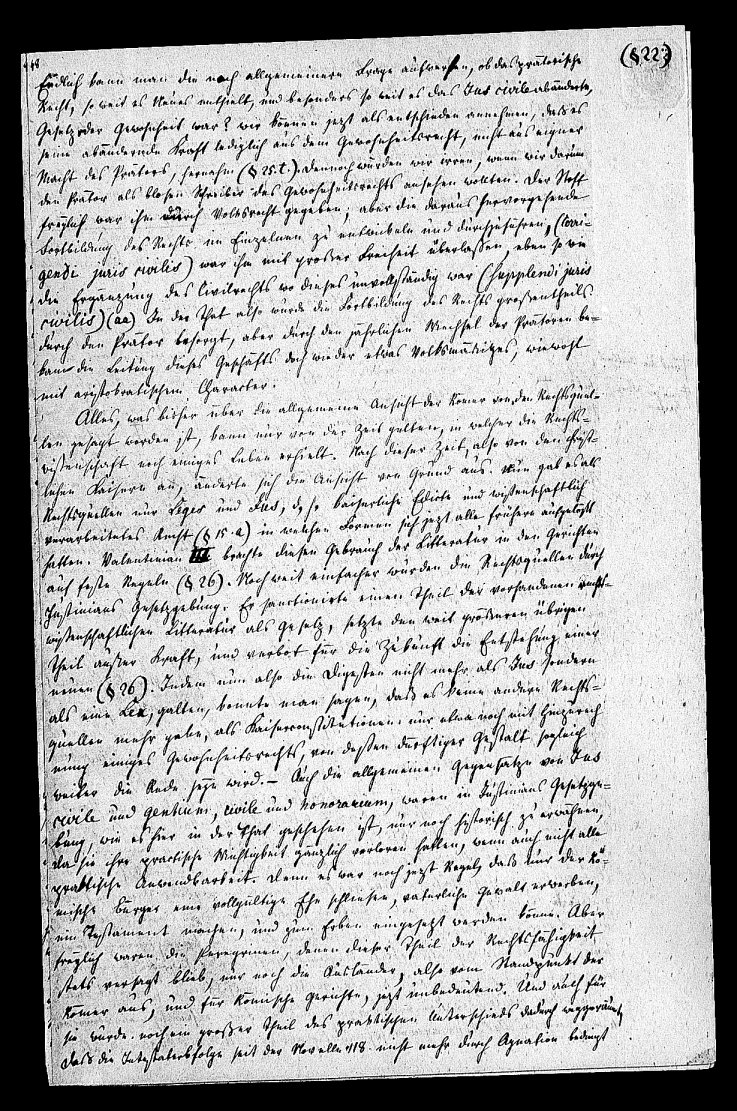 48
(§ 22)
Endlich kann man die noch allgemeinere Frage aufwerfen, ob das prätorische
Recht, so weit es Neues enthielt, und besonders so weit es das Jus civile abänderte,
Gesetz oder Gewohnheit war? wir können jetzt als entschieden annehmen, daß es
seine abändernde Kraft lediglich aus dem Gewohnheitsrecht, nicht aus eigner
Macht des Prätors, hernahm (§ 25.t.). Dennoch würden wir irren, wenn wir darum
den Prätor als bloßen Schreiber des Gewohnheitsrechts ansehen wollten. Der Stoff
freylich war ihm durch Volksrecht gegeben, aber die daraus hervorgehende
Fortbildung des Rechts im Einzelnen zu entwickeln und durchzuführen, (corri-
gendi juris civilis) war ihm mit großer Freiheit überlassen, eben so wie
die Ergänzung des Civilrechts wo dieses unvollständig war (supplendi juris
civilis) (aa) In der That also wurde die Fortbildung des Rechts großentheils
durch den Prätor besorgt, aber durch den jährlichen Wechsel der Prätoren be-
kam die Leitung dieses Geschäfts doch wieder etwas Volksmäßiges, wiewohl
mit aristokratischem Character.
Alles, was bisher über die allgemeine Ansicht der Römer von den Rechtsquel-
len gesagt worden ist, kann nur von der Zeit gelten, in welcher die Rechts-
wissenschaft noch einiges Leben erhielt. Nach dieser Zeit, also von den christ-
lichen Kaisern an, änderte sich die Ansicht von Grund aus. Nun gab es als
Rechtsquellen nur Leges und Jus, d. h. kaiserliche Edicte und wissenschaftlich
verarbeitetes Recht (§ 15.a) in welchen Formen sich jetzt alle frühere aufgelöst
hatten. Valentinian III brachte diesen Gebrauch der Litteratur in den Gerichten
auf feste Regeln (§ 26). Noch weit einfacher wurden die Rechtsquellen durch
Justinians Gesetzgebung. Er sanctionirte einen Theil der vorhandenen
wissenschaftlichen Litteratur als Gesetz, setzte den weit größeren übrigen
Theil außer Kraft, und verbot für die Zukunft die Entstehung einer
neuen (§ 26). Indem nun also die Digesten nicht mehr als Jus sondern
als eine Lex, galten, konnte man sagen, daß es keine andere Rechts-
quellen mehr gebe, als Kaiserconstitutionen: nur etwa noch mit Hinzurech
nung einiges Gewohnheitsrechts, von deßen dürftiger Gestalt sogleich
weiter die Rede seyn wird. – Auch die allgemeinen Gegensätze von Jus
civile und gentium, civile und honorarium, waren in Justinians Gesetzge-
bung, wie es hier in der That geschehen ist, nur noch historisch zu erwähnen,
da sie ihre practische Wichtigkeit gänzlich verloren hatten, wenn auch nicht alle
praktische Anwendbarkeit. Denn es war noch jetzt Regel, daß nur der Rö-
mische Bürger eine vollgültige Ehe schließen, väterliche Gewalt erwerben,
ein Testament machen, und zum Erben eingesetzt werden könne. Aber
freylich waren die Peregrinen, denen dieser Theil der Rechtsfähigkeit
stets versagt blieb, nur noch die Ausländer, also vom Standpunkt der
Römer aus, und für Römische Gerichte, jetzt unbedeutend. Und auch für
sie wurde noch ein großer Theil des praktischen Unterschieds dadurch weggeräumt,
daß die Intestaterbfolge seit der Novelle 118 nicht mehr durch Agnation bedingt